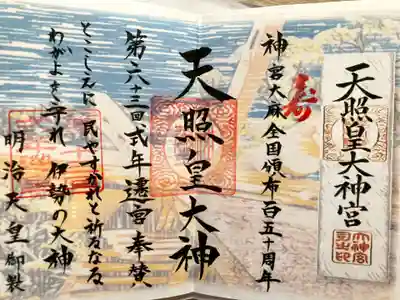 天照皇大神宮
神宮大麻全国頒布百五十周年
寿
天照皇大神
第六十三回式年遷宮奉賛
とこしえに 民やすかれと祈るなる
わがよを守れ 伊勢の大神
明治天皇御製